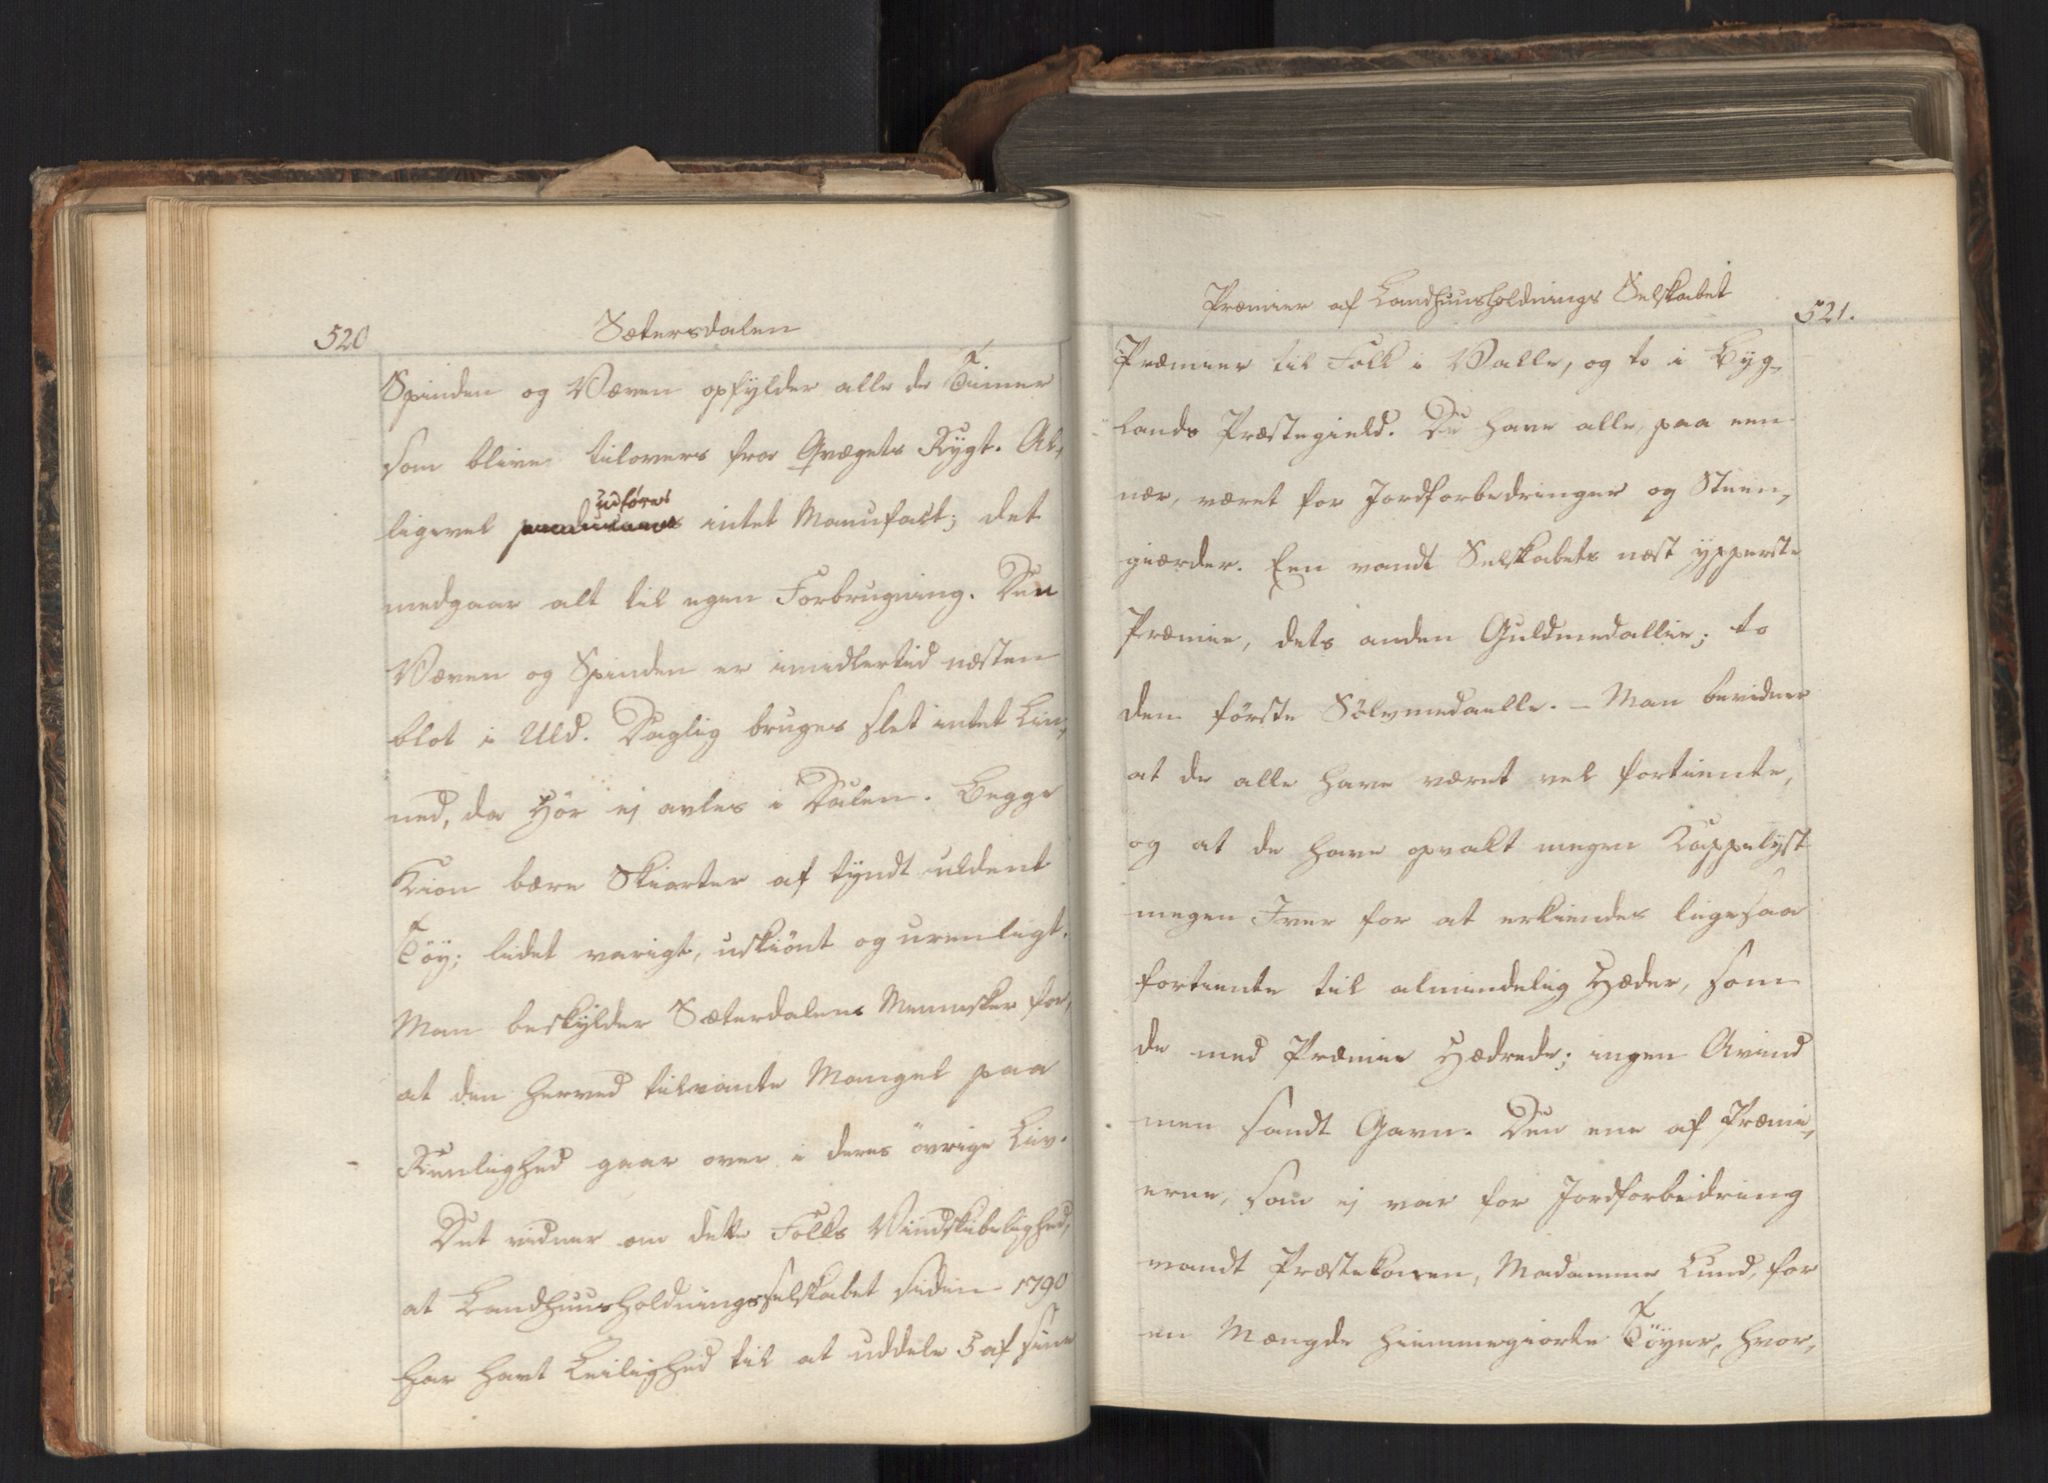 520
Sætersdalen
Spinden og Væven opfylder alle de Timer
som bliver tilovers fra Qvægets Rygt. Al-
ligevel udføres intet Manufact; det
medgaar alt til egen Forbrugning. Den
Væven og Spinden er imidlertid næsten
blot i Uld. Daglig bruges slet intet Lin-
ned, da Hör ej avles i Dalen. Begge
Kion bære Skiorter af tyndt uldent
Töy; lidet varigt, uskiönt og urenligt.
Man beskylder Sæterdalens Mennesker for,
at den herved tilvante Mangel paa
Reenlighed gaar over i deres övrige Liv.
Det vidner om dette Folks Vindskibelighed,
at Landhuusholdningsselskabet siden 1790
har havt Leilighed til at uddele 5 af sine
Præmier af Landhuusholdnings Selskabet
521.
Præmier til Folk i Valle, og to i Byg-
lands Præstegield. De have alle, paa een
nær, været for Jordforbedringer og Steen-
giærder. Een vandt Selskabets næst ypperste
Præmie, dets anden Guldmedallie; to
den förste Sölvmedaelle. – Man bevidner
at de alle have været vel fortiente,
og at de have opvakt megen Kappelyst
megen Iver for at erkiendes ligesaa
fortiente til almindelig Hæder, som
de med Præmie Hædrede; ingen Avind
men sandt Gavn. Den ene af Præmi-
erne, som ej var for Jordforbedring
vandt Præstekonen, Madamme Lund, for
en Mængde hiemmegiorte Töyer, hvor-